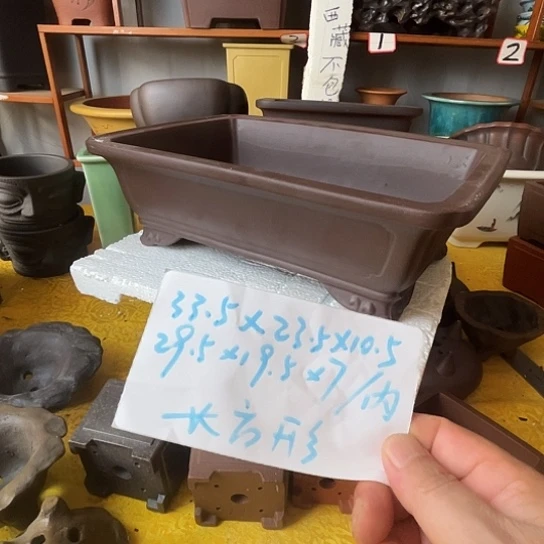 西藏不包
1
2
33.5×23.5×10.5
29.5×19.5×7/内
长方形